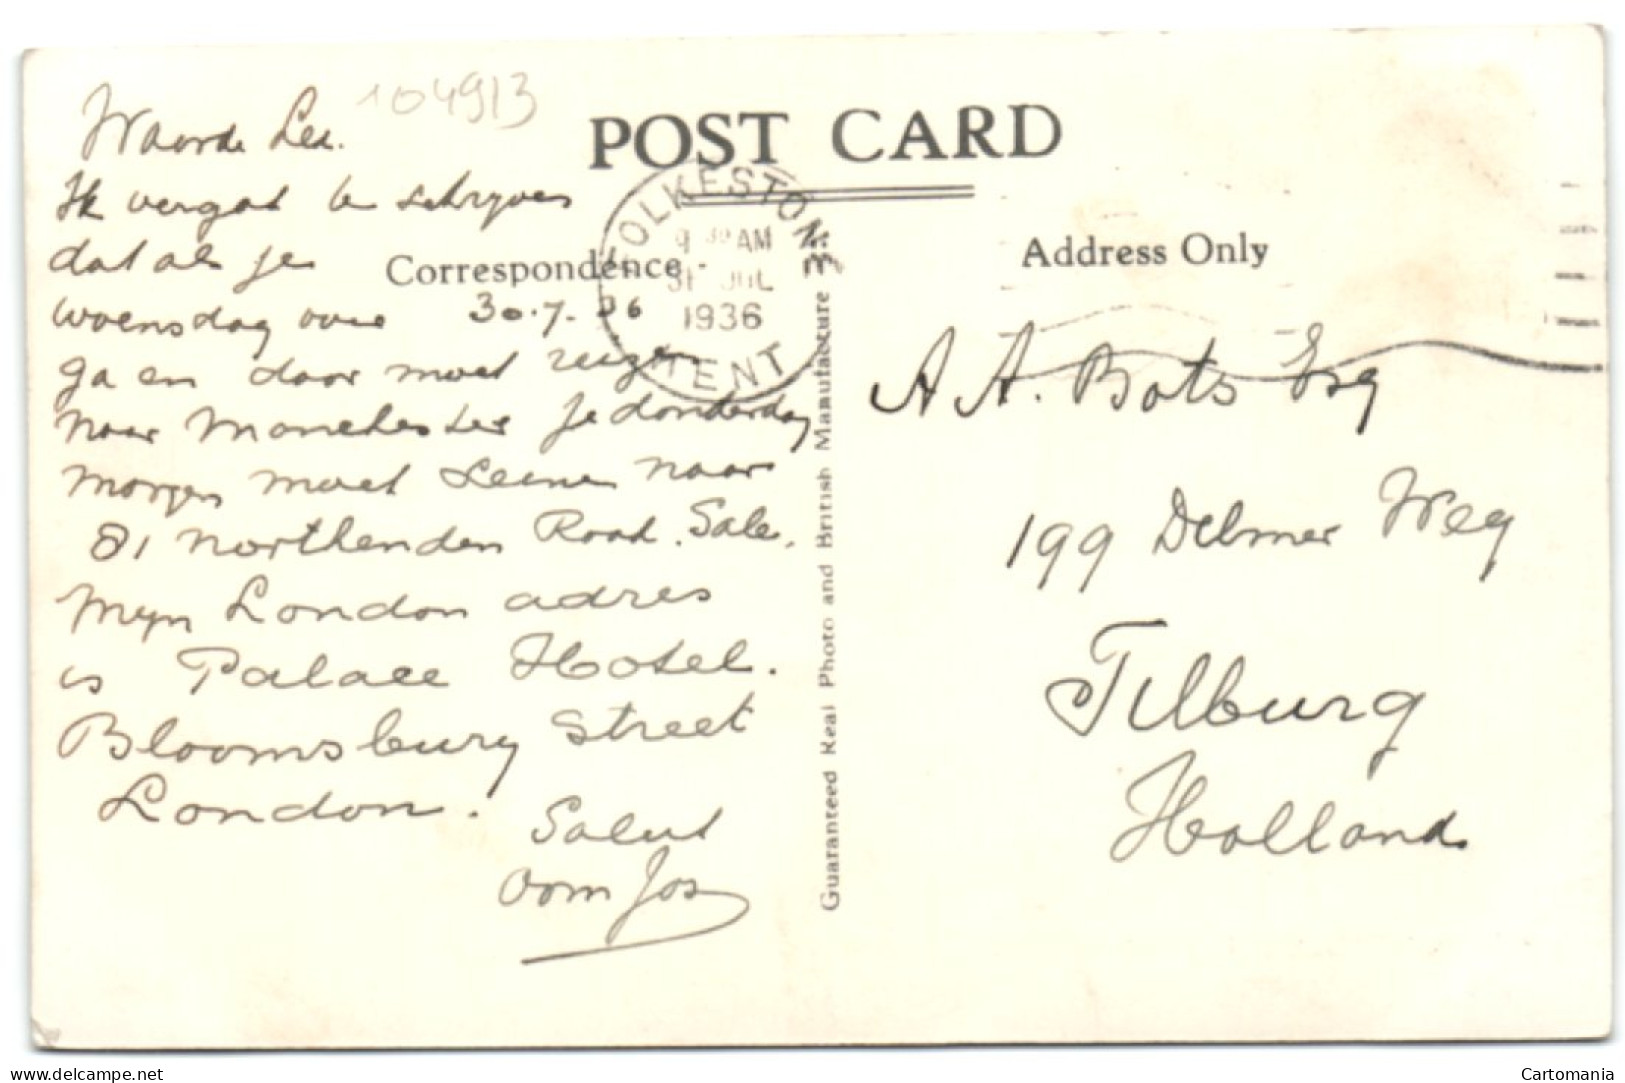 104913
POST CARD
Waarde Leo.
Ik vergat te schryven
dat als je
Correspondence
Address Only
woensdag over 30.7.36
ga en daar moet reizen
naar Manchester je donderdag
morgen moet seinen naar
81 Northenden Road. Sale.
Myn London adres
is Palace Hotel.
Bloomsbury Street
London.
Salut
Oom Jos
FOLKESTONE
9 AM
31 JUL
1936
KENT
Guaranteed Real Photo and British Manufacture
A A. Bots Esq
199 Delmer Weg
Tilburg
Holland
www.delcampe.net
Cartomania